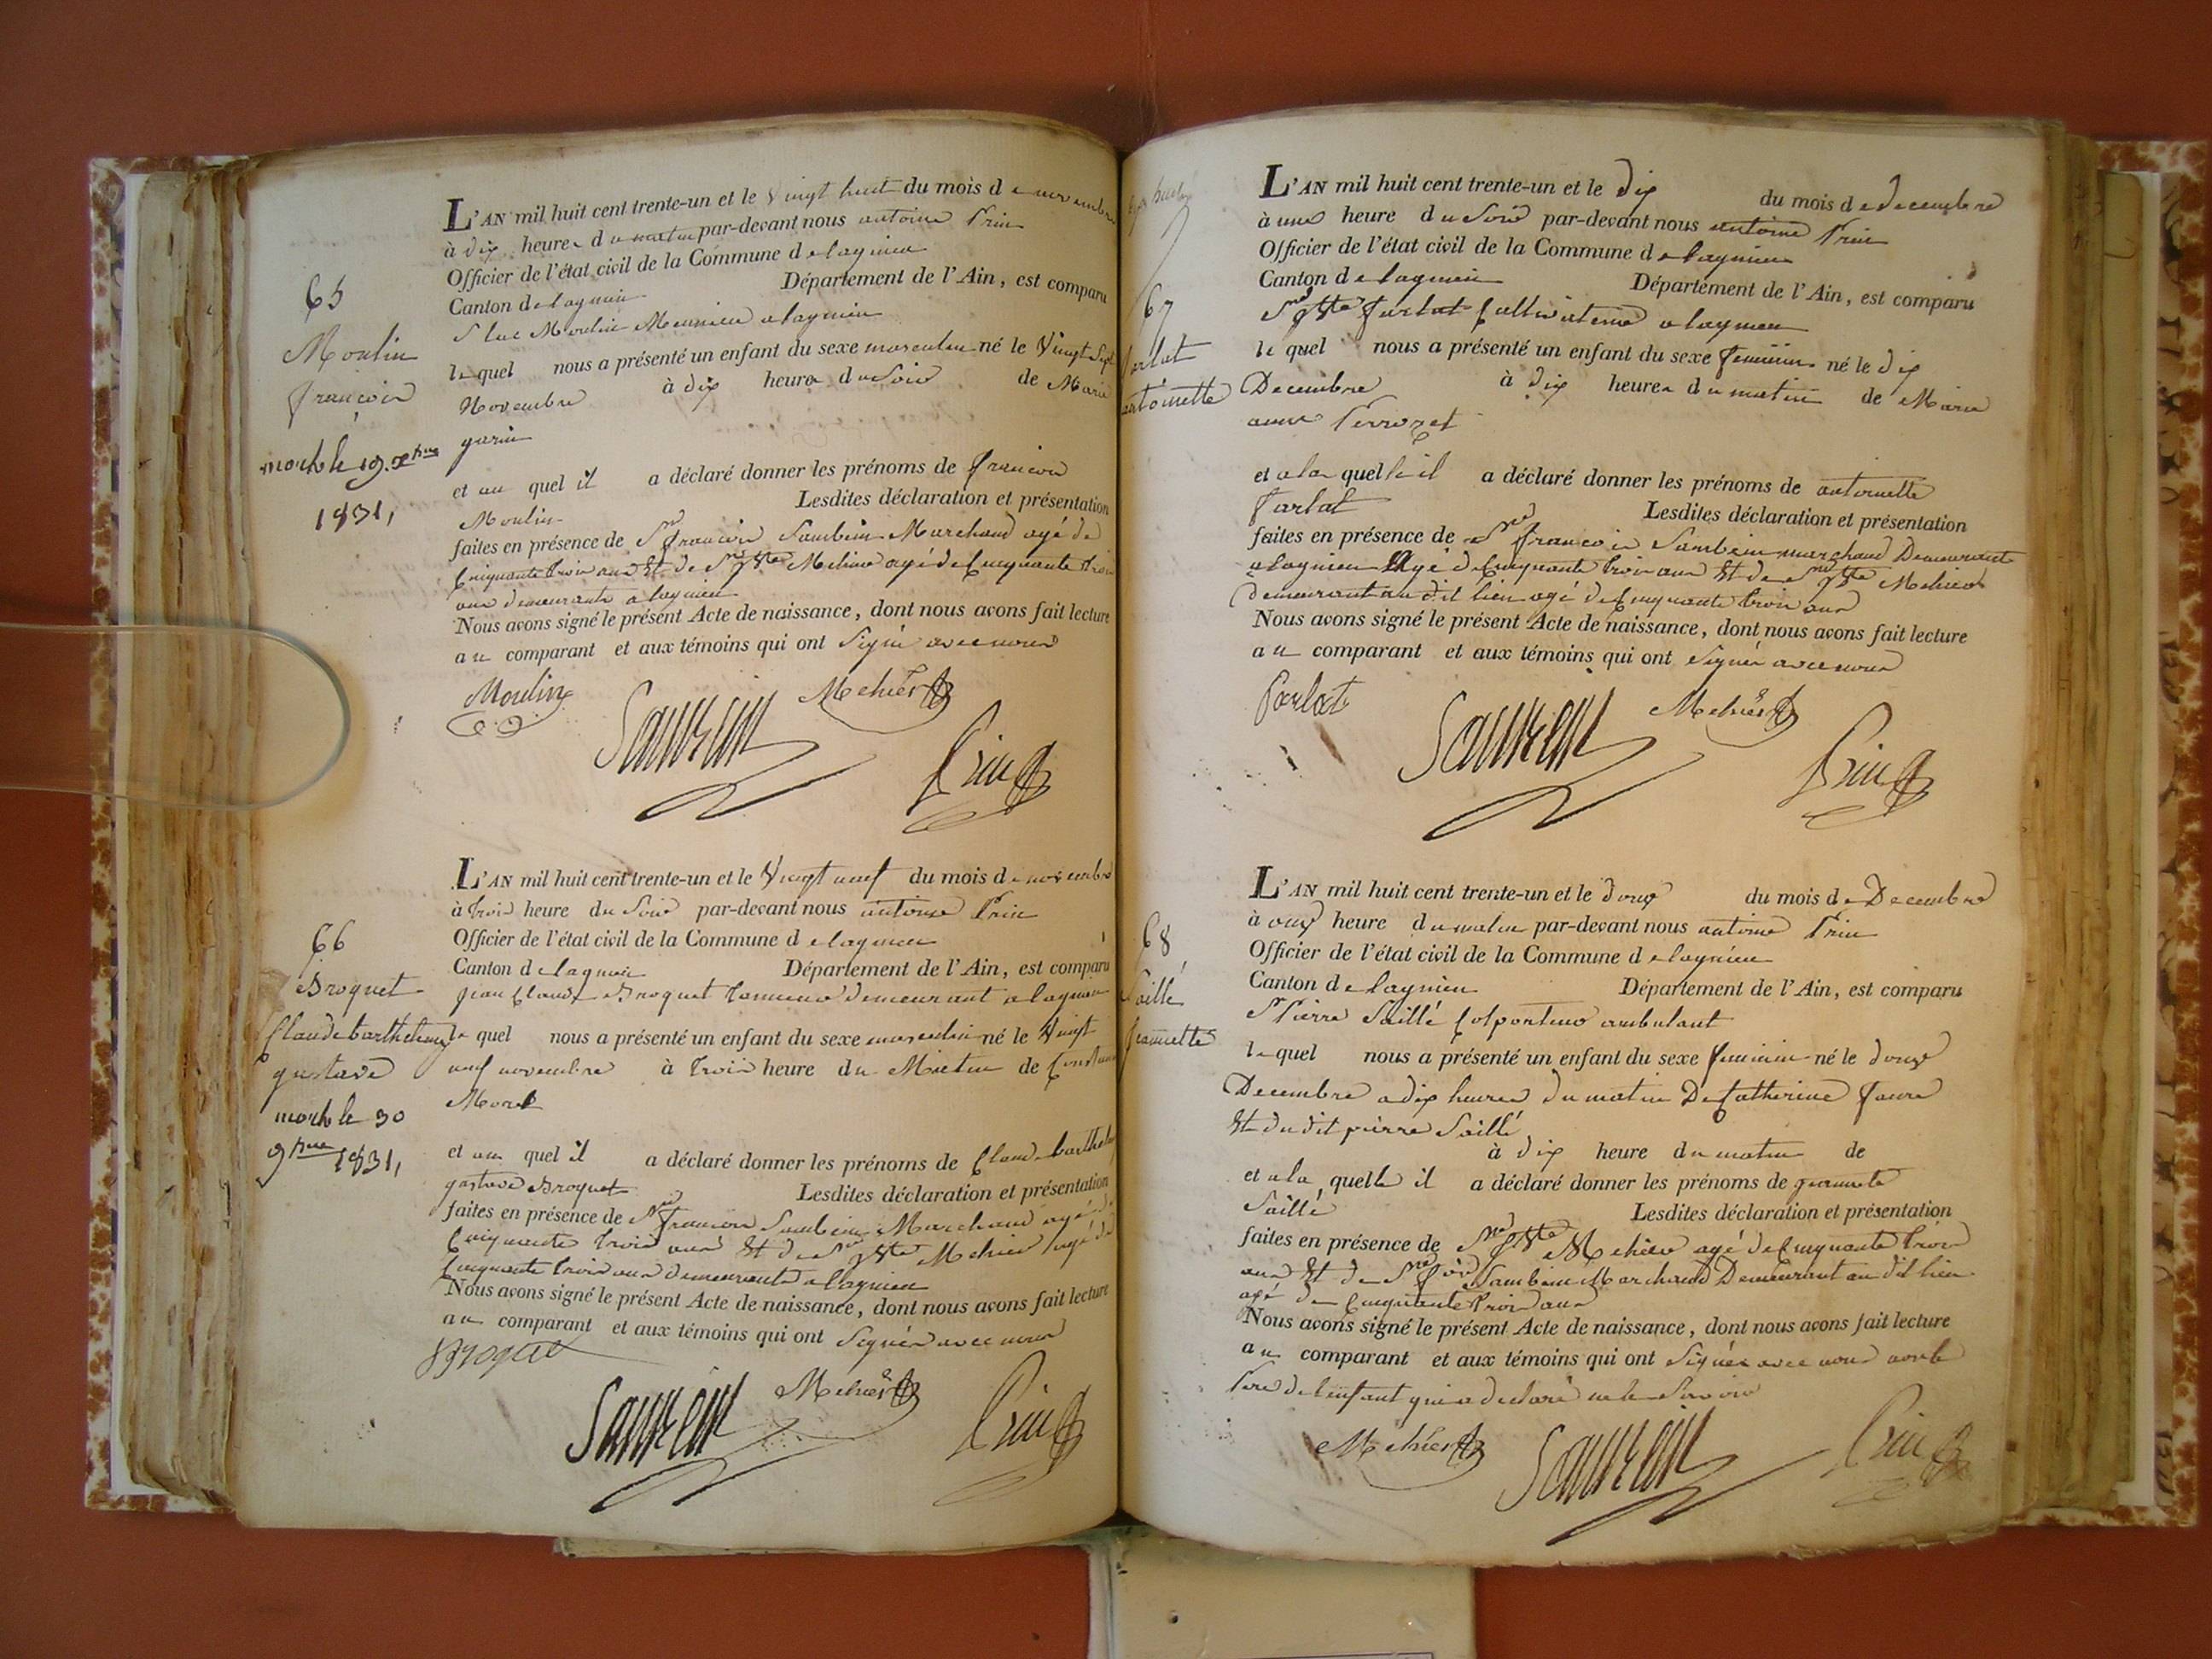 65
Moulin
françois
mort le 19. xbre
1831,
L'AN mil huit cent trente-un et le Vingt huit du mois de novembre
à dix heures du matin par-devant nous antoine Prin
Officier de l'état civil de la Commune de lagnieu
Canton de lagnieu Département de l'Ain, est comparu
S luc Moulin Meunier a lagnieu
le quel nous a présenté un enfant du sexe masculin né le Vingt Sept
Novembre à dix heures du Soir de Marie
garin
et au quel il a déclaré donner les prénoms de françois
Moulin Lesdites déclaration et présentation
faites en présence de Sr françois Sambein Marchand agé de
Cinquante trois ans Et de Sr jBte Mehier agé de Cinquante trois
ans demeurants a lagnieu
Nous avons signé le présent Acte de naissance, dont nous avons fait lecture
au comparant et aux témoins qui ont Signé avec nous
Moulin Mehier
Sambein Prin
66
Broquet
Claude barthelemy
gustave
mort le 30
9bre 1831,
L'AN mil huit cent trente-un et le Vingt neuf du mois de novembre
à trois heure du Soir par-devant nous antoine Prin
Officier de l'état civil de la Commune de lagnieu
Canton de lagnieu Département de l'Ain, est comparu
jean Claude Broquet tanneur demeurant a lagnieu
le quel nous a présenté un enfant du sexe masculin né le Vingt
neuf novembre à trois heure du Matin de Constance
Morel
et au quel il a déclaré donner les prénoms de Claude barthelemy
gustave Broquet Lesdites déclaration et présentation
faites en présence de Sr françois Sambein Marchand agé de
Cinquante trois ans Et de Sr jBte Mehier agé de
Cinquante trois ans demeurants a lagnieu
Nous avons signé le présent Acte de naissance, dont nous avons fait lecture
au comparant et aux témoins qui ont Signés avec nous
Broquet
Sambein Mehier Prin
67
farlat
antoinette
L'AN mil huit cent trente-un et le dix du mois de decembre
à une heure du Soir par-devant nous antoine Prin
Officier de l'état civil de la Commune de lagnieu
Canton de lagnieu Département de l'Ain, est comparu
Sr jBte farlat Cultivateur a lagnieu
le quel nous a présenté un enfant du sexe feminin né le dix
Decembre à dix heures du matin de Marie
anne Perrozet
et a la quelle il a déclaré donner les prénoms de antoinette
farlat Lesdites déclaration et présentation
faites en présence de Sr françois Sambein marchand Demeurant
a lagnieu agé de Cinquante trois ans Et de Sr jBte Mehier
Demeurant au dit lieu agé de Cinquante trois ans
Nous avons signé le présent Acte de naissance, dont nous avons fait lecture
au comparant et aux témoins qui ont Signés avec nous
farlat Mehier
Sambein Prin
68
Saillé
jeannette
L'AN mil huit cent trente-un et le douze du mois de Decembre
à onze heure du matin par-devant nous antoine Prin
Officier de l'état civil de la Commune de lagnieu
Canton de lagnieu Département de l'Ain, est comparu
Sr Pierre Saillé Colporteur ambulant
le quel nous a présenté un enfant du sexe feminin né le douze
Decembre a dix heures du matin De Catherine faure
Et du dit pierre Saillé
à dix heure du matin de
et a la quelle il a déclaré donner les prénoms de jeannette
Saillé Lesdites déclaration et présentation
faites en présence de Sr jBte Mehier agé de Cinquante trois
ans Et de Sr fois Sambein Marchand Demeurant au dit lieu
agé de Cinquante trois ans
Nous avons signé le présent Acte de naissance, dont nous avons fait lecture
au comparant et aux témoins qui ont Signés avec nous non le
Pere de l'enfant qui a declaré ne le Savoir
Mehier Sambein Prin